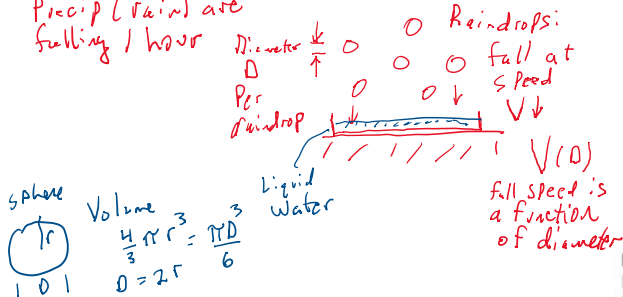 Precip (rain) are
falling / hour
Diameter
D
Per
raindrop
Raindrops:
fall at
speed
V
V(D)
fall speed is
a function
of diameter
Liquid
Water
sphere
r
D
Volume
4/3 πr³ = πD³/6
D = 2r